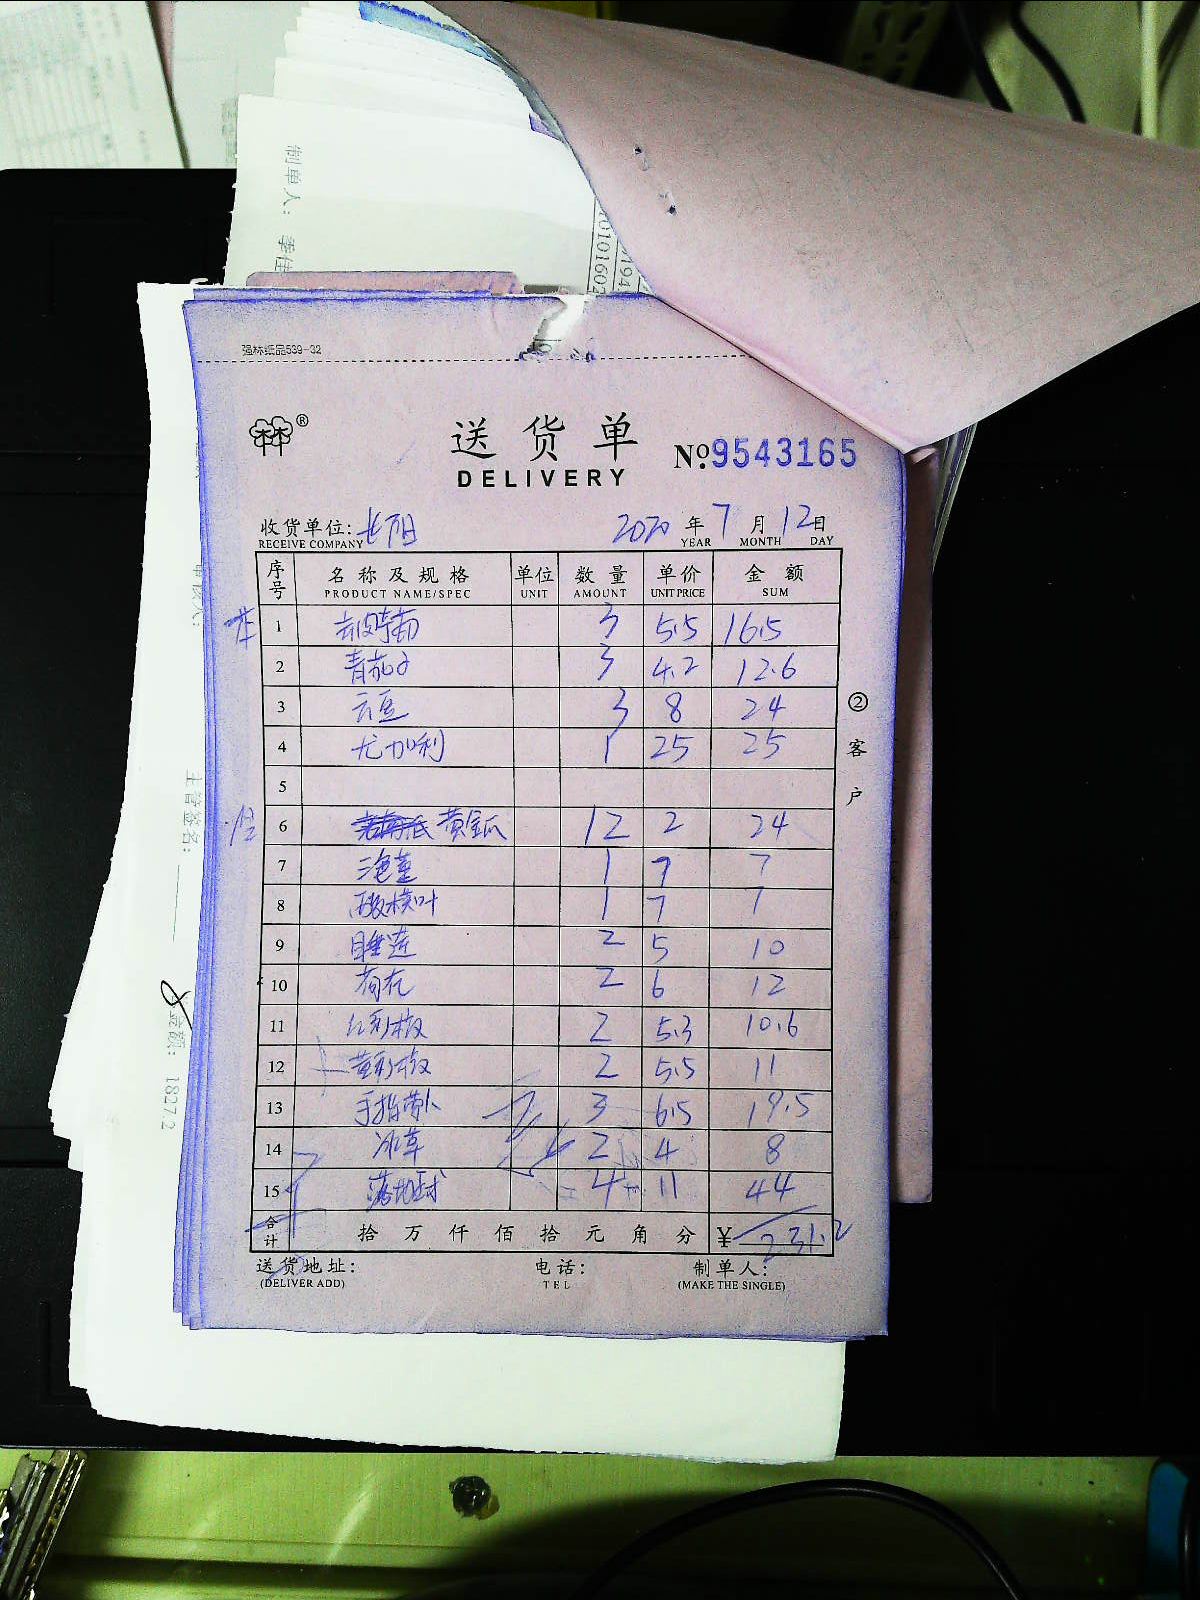 制单人：李佳
强林纸品539-32
送货单
DELIVERY
№9543165
收货单位：长阳 2020年7月12日
RECEIVE COMPANY YEAR MONTH DAY
序号 名称及规格 单位 数量 单价 金额
PRODUCT NAME/SPEC UNIT AMOUNT UNIT PRICE SUM
1 3 5.5 16.5
2 青茄子 3 4.2 12.6
3 云豆 3 8 24
4 尤加利 1 25 25
5
6 黄金瓜 12 2 24
7 1 7 7
8 酸模叶 1 7 7
9 睡莲 2 5 10
10 荷花 2 6 12
11 红彩椒 2 5.3 10.6
12 黄彩椒 2 5.5 11
13 手指萝卜 3 6.5 19.5
14 冰草 2 4 8
15 落地球 4 11 44
合计 拾万仟佰拾元角分 ¥231.2
送货地址： 电话： 制单人：
(DELIVER ADD) TEL (MAKE THE SINGLE)
②客户
主管签名：
金额：1827.2